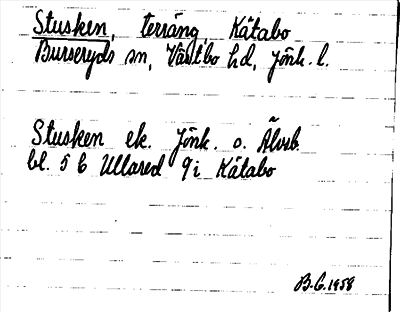 Stusken, terräng, Kätabo
Burseryds sn, Västbo hd, Jönk. l.
Stusken ek. Jönk. o. Älvsb.
bl. 5 C Ullared 9i Kätabo
B.G. 1958